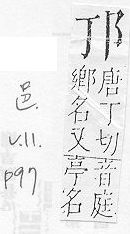 邒
唐丁切音庭
鄉名又亭名
邑.
v.11.
p97